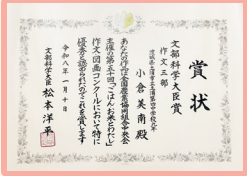 賞状
文部科学大臣賞
作文三部
小倉美南殿
あなたの作品は全国農業協同組合中央会
主催の第五十回「ごはん・お米とわたし」
作文・図画コンクールにおいて特に
優秀と認められたのでこれを賞します
令和八年一月十日
文部科学大臣 松本洋平